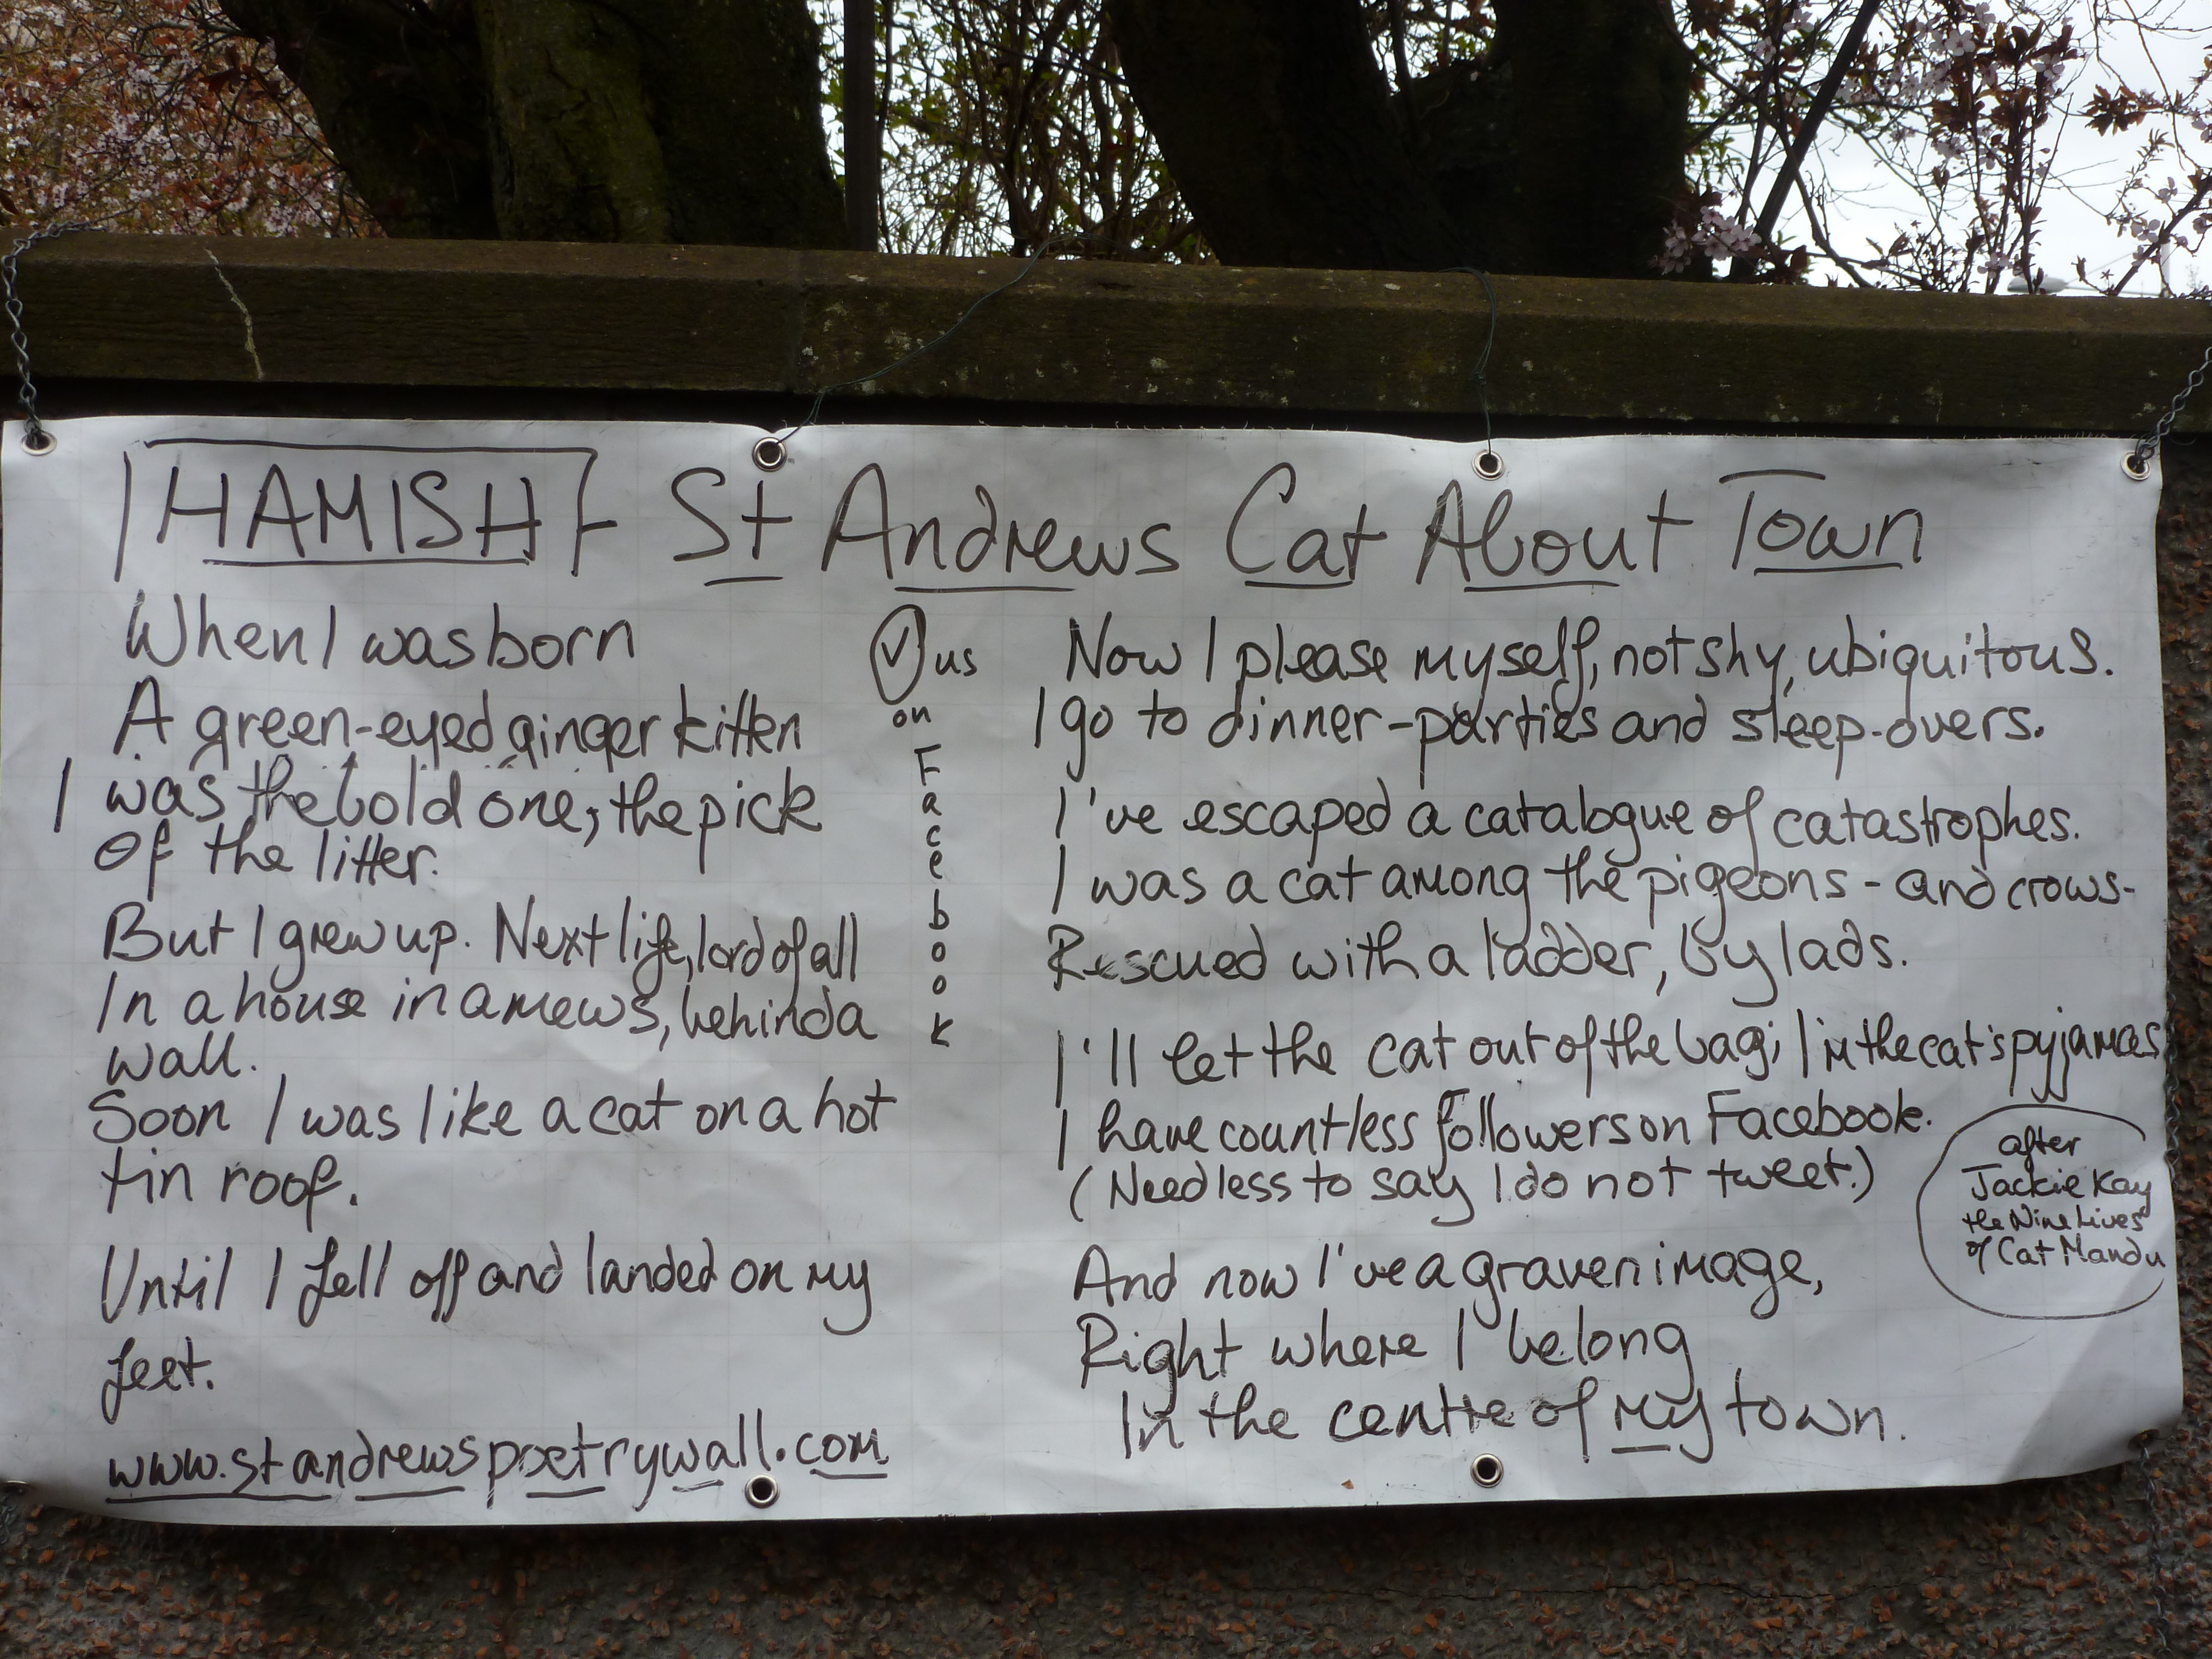 HAMISH - St Andrews Cat About Town
When I was born
A green-eyed ginger kitten
I was the bold one, the pick
Of the litter.
But I grew up. Next life, lord of all
In a house in a mews, behind a
wall.
Soon I was like a cat on a hot
tin roof.
Until I fell off and landed on my
feet.
www.standrewspoetrywall.com
✓ us
on
Facebook
Now I please myself, not shy, ubiquitous.
I go to dinner-parties and sleep-overs.
I've escaped a catalogue of catastrophes.
I was a cat among the pigeons - and crows -
Rescued with a ladder, by lads.
I'll let the cat out of the bag; I'm the cat's pyjamas
I have countless followers on Facebook.
(Needless to say I do not tweet.)
And now I've a graven image,
Right where I belong
In the centre of my town.
after
Jackie Kay
the Nine Lives
of Cat Mandu